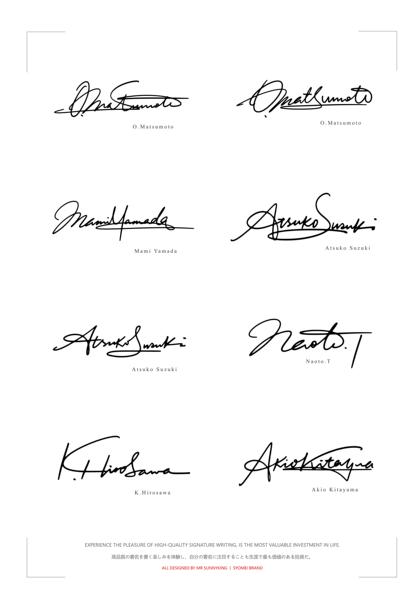 O.Matsumoto O.Matsumoto
O.Matsumoto O.Matsumoto
Mami Yamada Atsuko Suzuki
Mami Yamada Atsuko Suzuki
Atsuko Suzuki Naoto.T
Atsuko Suzuki Naoto.T
K.Hirosawa Akio Kitayama
K.Hirosawa Akio Kitayama
EXPERIENCE THE PLEASURE OF HIGH-QUALITY SIGNATURE WRITING, IS THE MOST VALUABLE INVESTMENT IN LIFE.
高品質の署名を書く楽しみを体験し、自分の署名に注目することも生涯で最も価値のある投資だ。
ALL DESIGNED BY MR SUNNYKING | SYOMEI BRAND